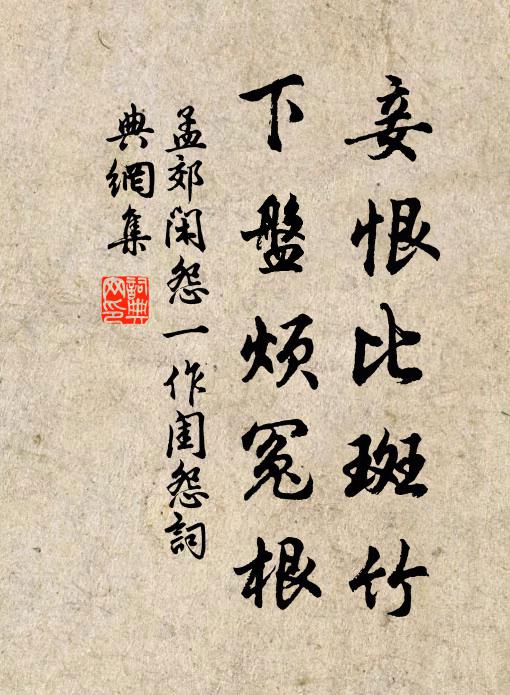 妾恨比斑竹
下盤煩冤根
孟郊閑怨一作閨怨詞
典網集
詞典网印